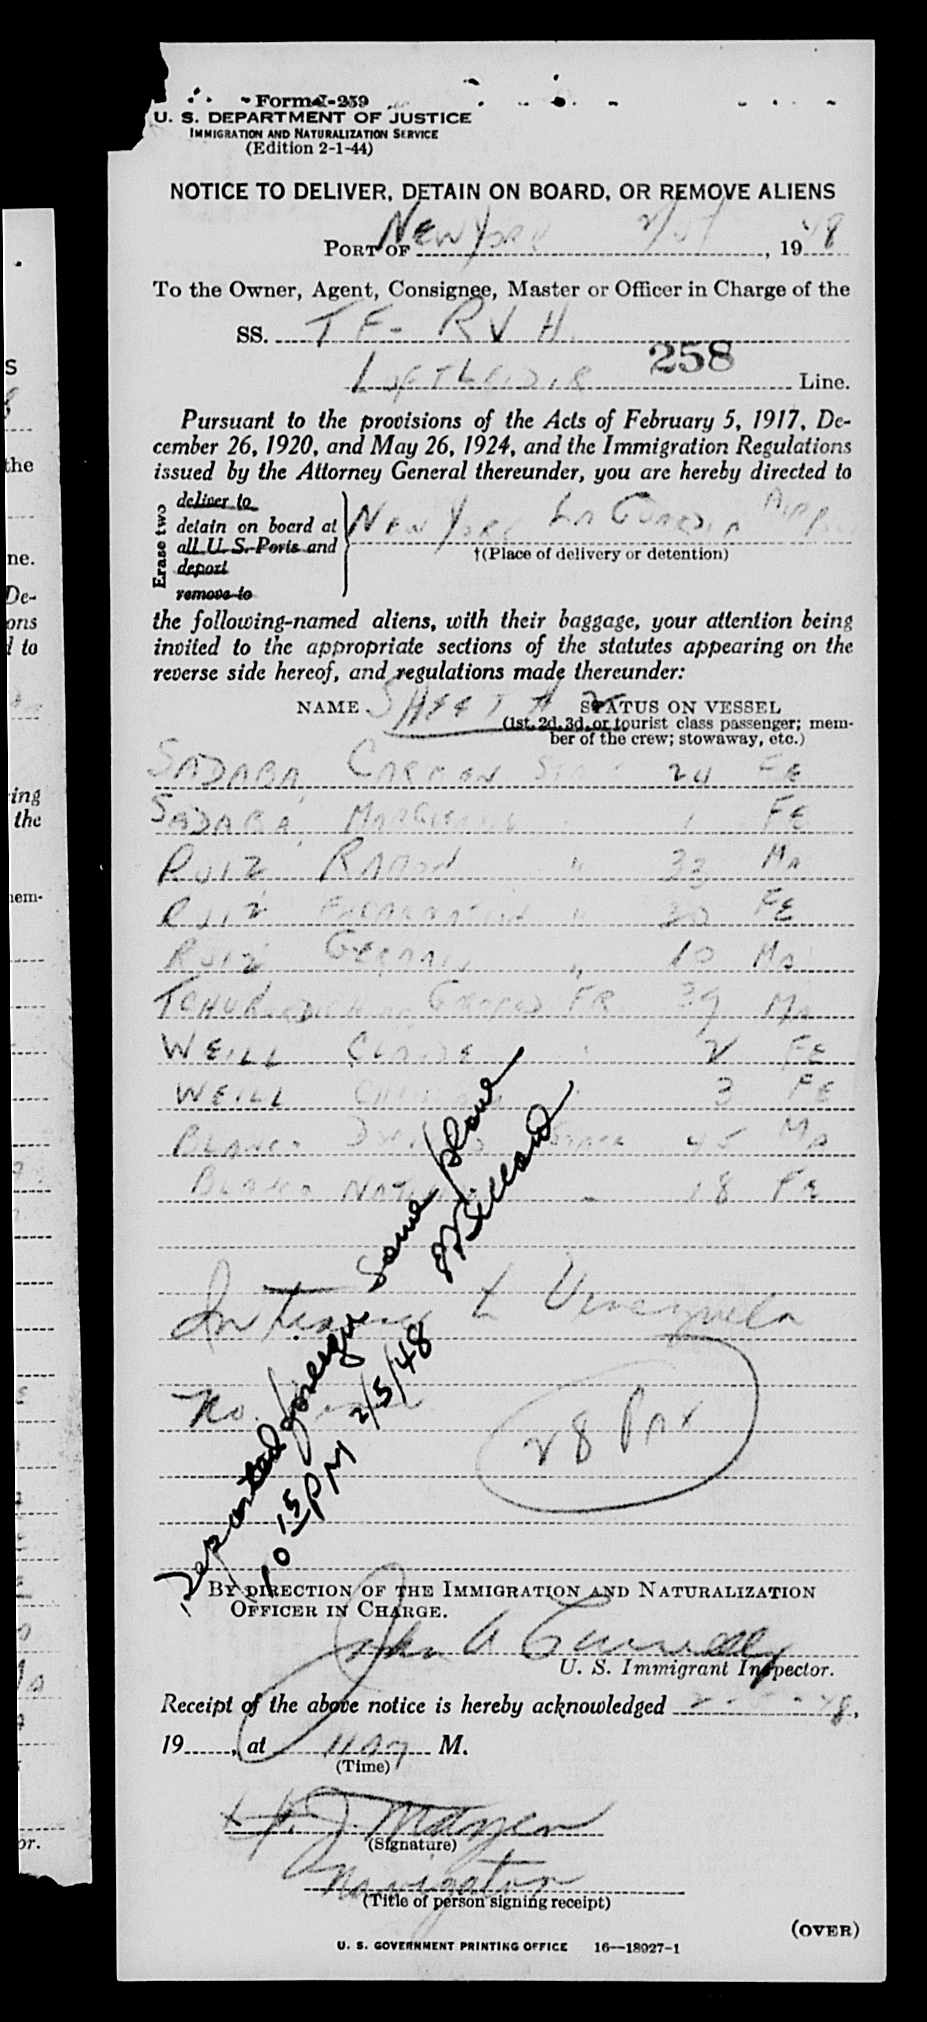 Form I-259
U. S. DEPARTMENT OF JUSTICE
IMMIGRATION AND NATURALIZATION SERVICE
(Edition 2-1-44)
NOTICE TO DELIVER, DETAIN ON BOARD, OR REMOVE ALIENS
PORT OF New York 2/5/, 1948
To the Owner, Agent, Consignee, Master or Officer in Charge of the
SS. TF- RVH.
258
LOFTLEIDIR Line.
Pursuant to the provisions of the Acts of February 5, 1917, De-
cember 26, 1920, and May 26, 1924, and the Immigration Regulations
issued by the Attorney General thereunder, you are hereby directed to
Erase two
deliver to
detain on board at
all U. S. Ports and
deport
remove to
NEW YORK LA GUARDIA AIRP
†(Place of delivery or detention)
the following-named aliens, with their baggage, your attention being
invited to the appropriate sections of the statutes appearing on the
reverse side hereof, and regulations made thereunder:
NAME SHEET # 2 STATUS ON VESSEL
(1st, 2d, 3d, or tourist class passenger; mem-
ber of the crew; stowaway, etc.)
SADABA, CARMEN 24 FE
SADABA, 1 FE
RUIZ RAMON " 33 MA
RUIZ " 30 FE
RUIZ GERMAN " 10 MA
FR 39 MA
WEILL CLAUDE 2 FE
WEILL 3 FE
BLANCO 45 MA
BLANCO 18 FE
In Transit to Venezuela
No
28 PAX
Departed foreign same plane
10 15 PM 2/5/48
BY DIRECTION OF THE IMMIGRATION AND NATURALIZATION
OFFICER IN CHARGE.
John A
U. S. Immigrant Inspector.
Receipt of the above notice is hereby acknowledged 2-5-48,
19, at M.
(Time)
(Signature)
Navigator
(Title of person signing receipt)
(OVER)
U. S. GOVERNMENT PRINTING OFFICE 16—18027-1